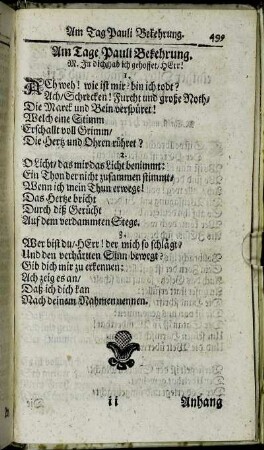 Am Tag Pauli Bekehrung. 499
Am Tage Pauli Bekehrung.
M. In dich hab ich gehoffet, HErr!
1.
ACh weh! wie ist mir! bin ich todt?
Ach/Schrecken! Furcht und große Noth/
Die Marck und Bein verspüret!
Welch eine Stimm
Erschallt voll Grimm/
Die Hertz und Ohren rühret?
2.
O Licht/ das mir das Licht benimmt:
Ein Thon der nicht zusammen stimmt/
Wenn ich mein Thun erwege!
Das Hertze bricht
Durch diß Gerücht
Auf dem verdammten Stege.
3.
Wer bist du/HErr! der mich so schlägt/
Und den verhärtten Sinn bewegt?
Gib dich mir zu erkennen:
Ach zeig es an/
Daß ich dich kan
Nach deinem Nahmen nennen.
ii Anhang